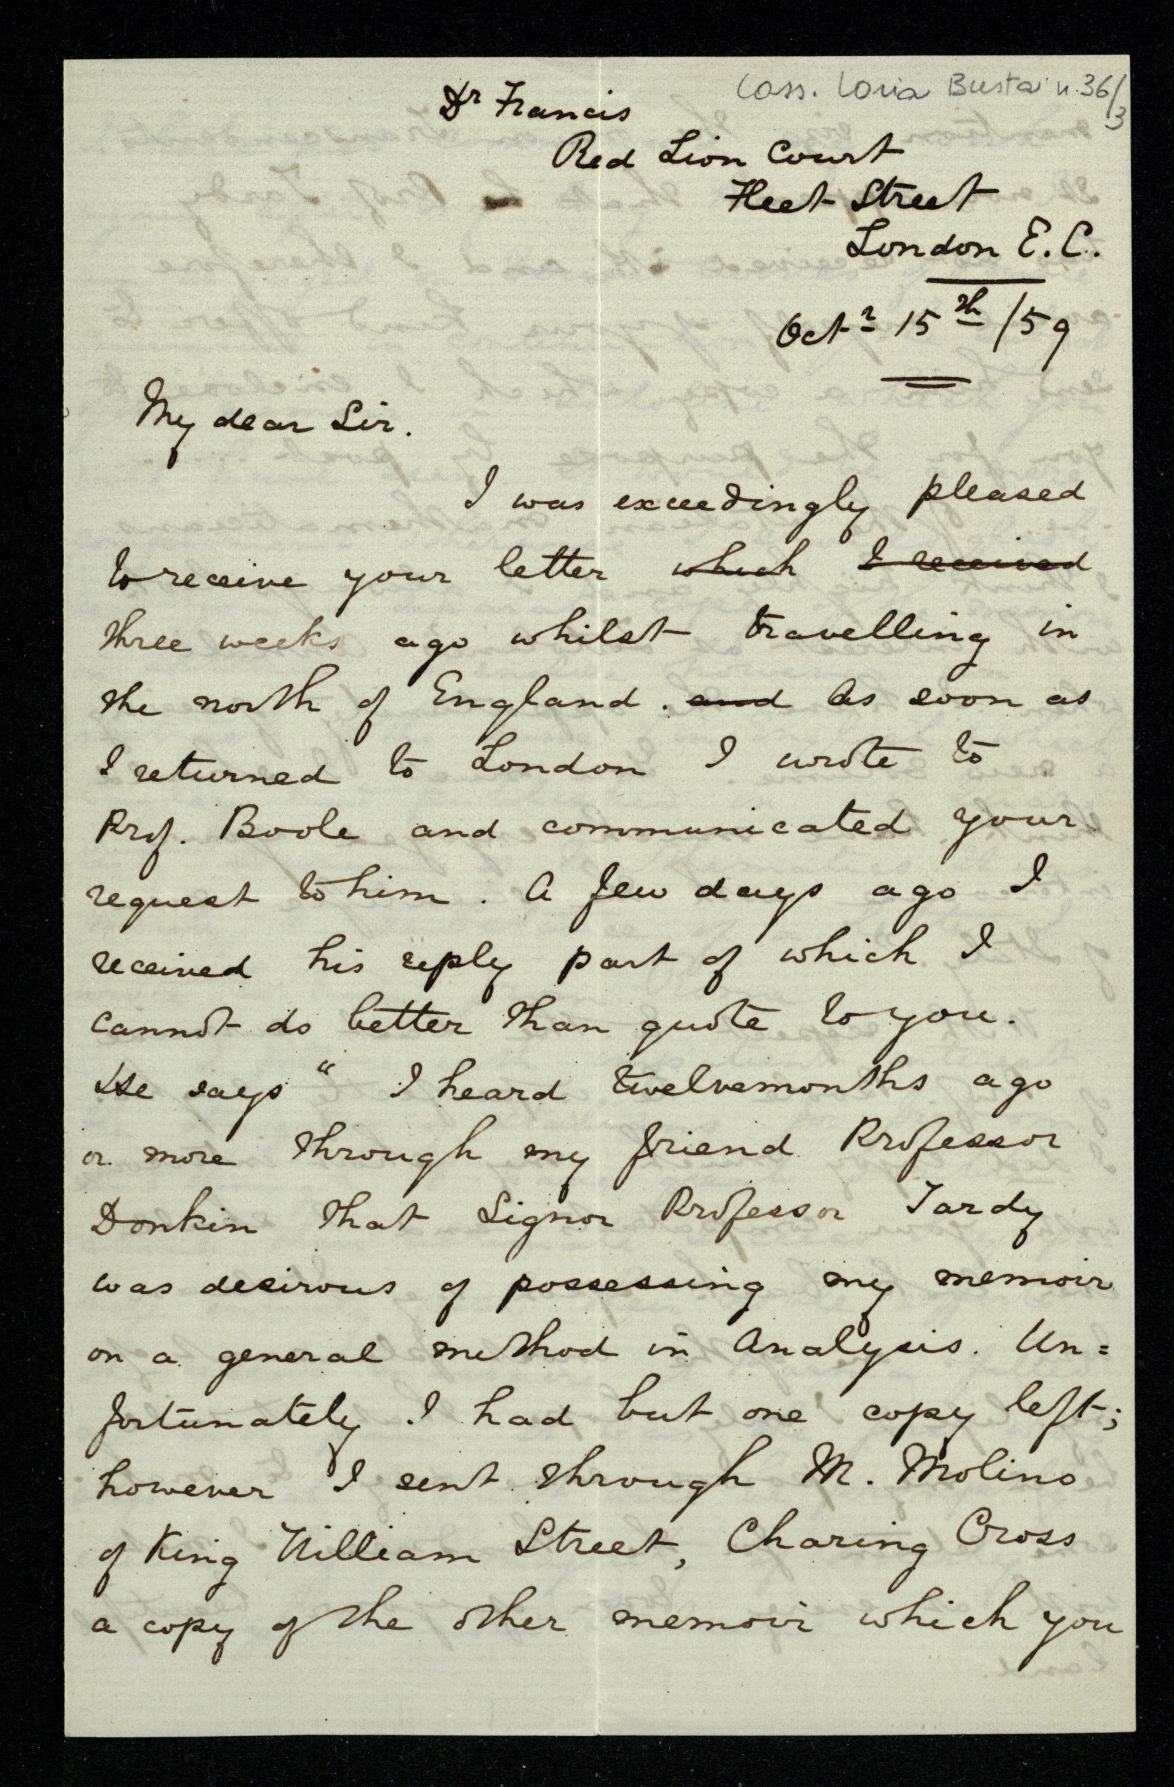 Cass. Loria Busta n. 36/3
Dr Francis
Red Lion Court
Fleet Street
London E.C.
Octr 15th /59
My dear Sir.
I was exceedingly pleased
to receive your letter which I received
three weeks ago whilst travelling in
the north of England. and As soon as
I returned to London I wrote to
Prof. Boole and communicated your
request to him. A few days ago I
received his reply part of which I
cannot do better than quote to you.
He says " I heard twelvemonths ago
or more through my friend Professor
Donkin that Signor Professor Tardy
was desirous of possessing my memoir
on a general method in Analysis. Un=
fortunately I had but one copy left;
however I sent through M. Molino
of King William Street, Charing Cross
a copy of the other memoir which you